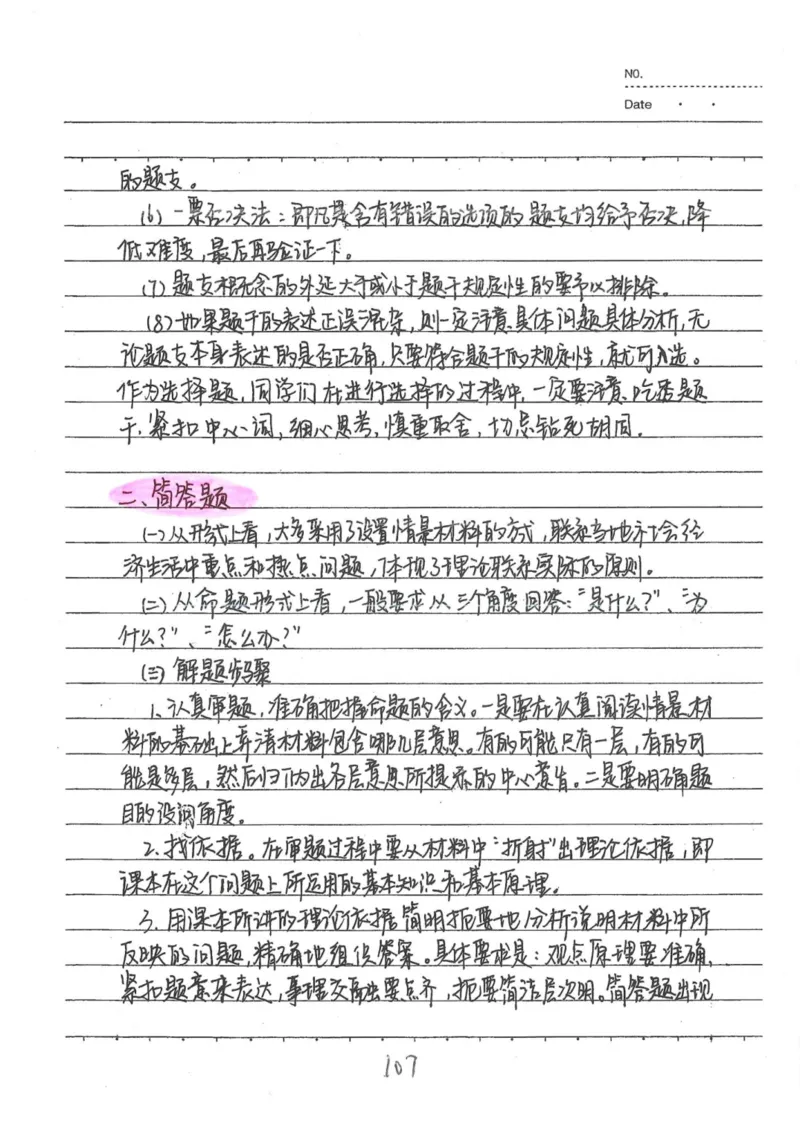 NO.
Date
的题支。
(6) 一票否决法：即凡是含有错误的选项的题支均给予否决，降
低难度，最后再验证一下。
(7) 题支概念的外延大于或小于题干规定性的要予以排除。
(8) 如果题干的表述正误混杂，则一定注意具体问题具体分析，无
论题支本身表述的是否正确，只要符合题干的规定性，就可入选。
作为选择题，同学们在进行选择的过程中，一定要注意，吃透题
干，紧扣中心词，细心思考，慎重取舍，切忌钻死胡同。
二、简答题
(一) 从形式上看，大多采用了设置情景材料的方式，联系当地社会经
济生活中重点和热点问题，体现了理论联系实际的原则。
(二) 从命题形式上看，一般要求从三个角度回答：“是什么？”、“为
什么？”、“怎么办？”
(三) 解题步骤
1、认真审题，准确把握命题的含义。一是要在认真阅读情景材
料的基础上弄清材料包含哪几层意思。有的可能只有一层，有的可
能是多层，然后归纳出各层意思所提示的中心意旨。二是要明确题
目的设问角度。
2、找依据。在审题过程中要从材料中“折射”出理论依据，即
课本在这个问题上所运用的基本知识和基本原理。
3、用课本所讲的理论依据简明扼要地分析说明材料中所
反映的问题，精确地组织答案。具体要求是：观点原理要准确，
紧扣题意来表达，事理交融出要点齐，扼要简洁层次明。简答题出现
107